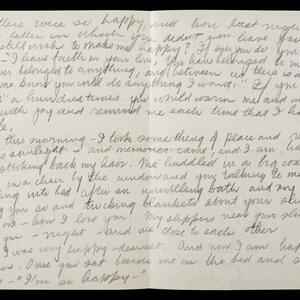 letters were so happy and how last night
letter in which you didn't even leave your
still wish to make me happy? If you do you
- I have faith in your love. You have belonged to me
ever belonged to anything, and between us there is a
me know you will do anything I want." "If you
" a hundred times you would warm me and
with joy and remind me each time that I ha

this morning - I took something of peace and
the sunlight - and memories came, and I am
stroking back my hair. Me huddled in a big coat
in a chair by the window and you talking to me
into bed after an unwilling bath and my
you so and tucking blankets about your
me - how I love you. My slippers near your
you - night - and we close to each other
I was very happy - dearest. And now I am hap
Once you sat beside me on the bed and s
- "I'm so happy - "